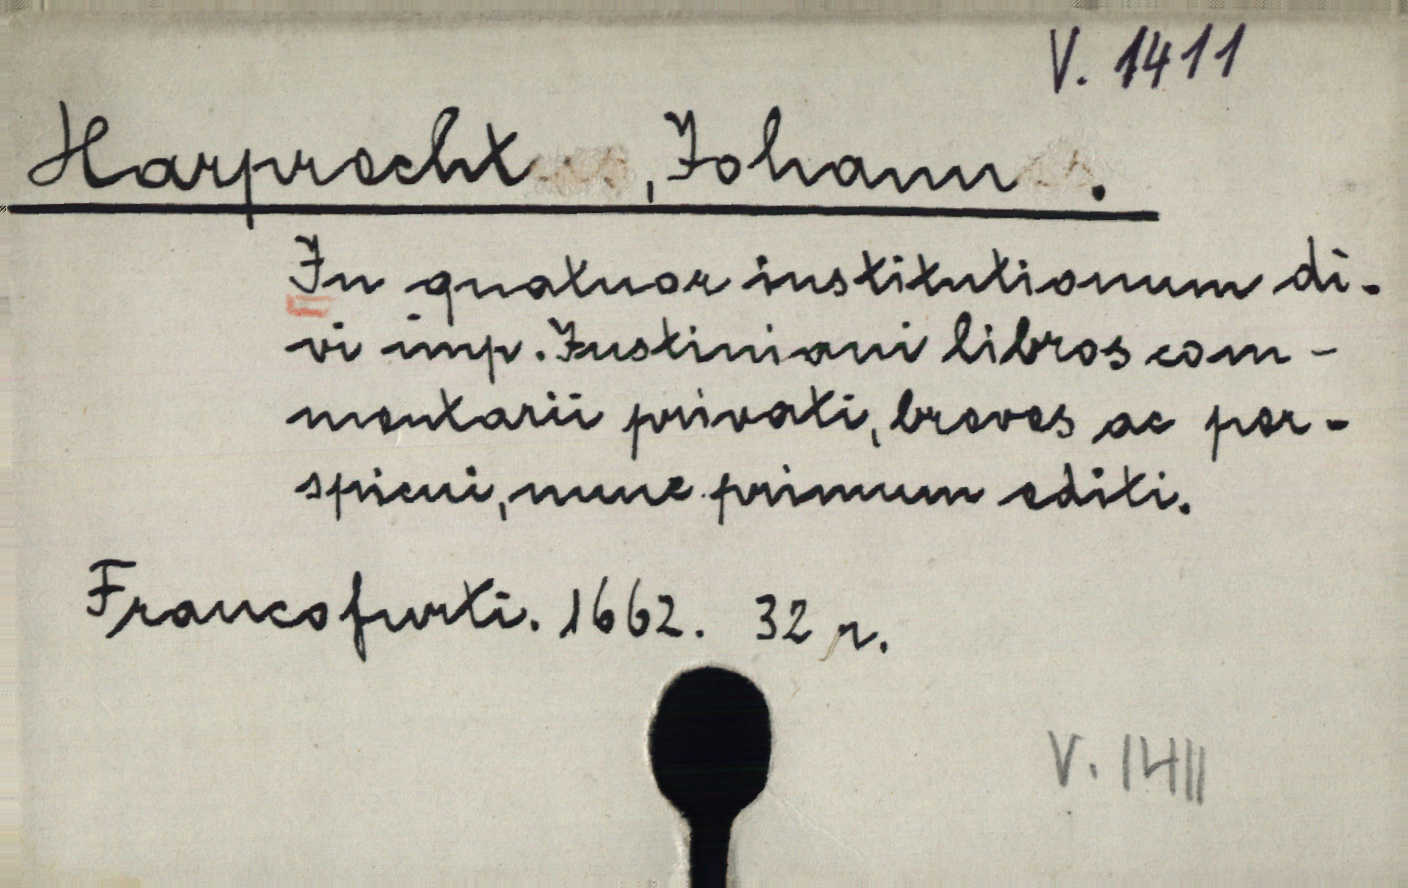 V. 1411
Harprecht, Johann.
In quatuor institutionum di-
vi imp. Justiniani libros com-
mentarii privati, breves ac per-
spicui, nunc primum editi.
Francofurti. 1662. 32 r.
V. 1411